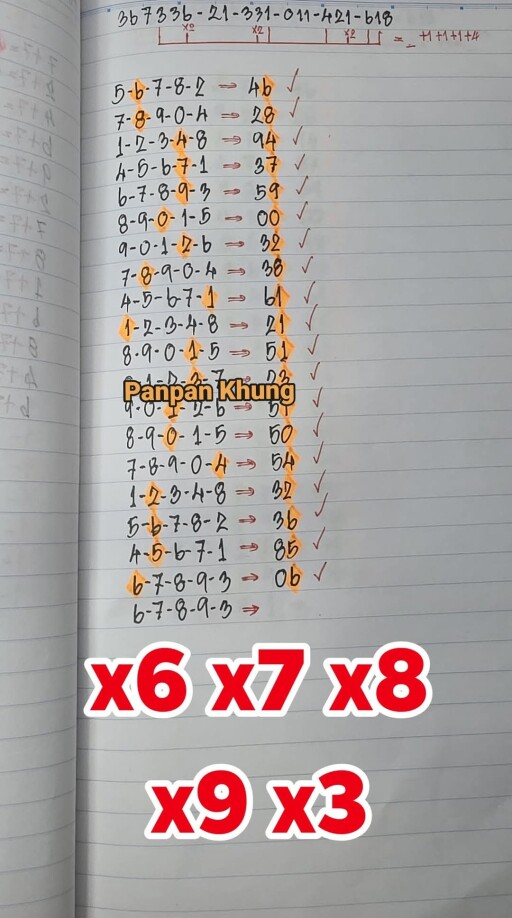 367336-21-331-011-421-618
x2 x2 = +1+1+1+4
5-6-7-8-2 ⇒ 46 ✓
7-8-9-0-4 ⇒ 28 ✓
1-2-3-4-8 ⇒ 94 ✓
4-5-6-7-1 ⇒ 37 ✓
6-7-8-9-3 ⇒ 59 ✓
8-9-0-1-5 ⇒ 00 ✓
9-0-1-2-6 ⇒ 32 ✓
7-8-9-0-4 ⇒ 38 ✓
4-5-6-7-1 ⇒ 61 ✓
1-2-3-4-8 ⇒ 21 ✓
8-9-0-1-5 ⇒ 51 ✓
Panpan Khung
9-0-1-2-6 ⇒ 51 ✓
8-9-0-1-5 ⇒ 50 ✓
7-8-9-0-4 ⇒ 54 ✓
1-2-3-4-8 ⇒ 32 ✓
5-6-7-8-2 ⇒ 36 ✓
4-5-6-7-1 ⇒ 85 ✓
6-7-8-9-3 ⇒ 06 ✓
6-7-8-9-3 ⇒
x6 x7 x8
x9 x3